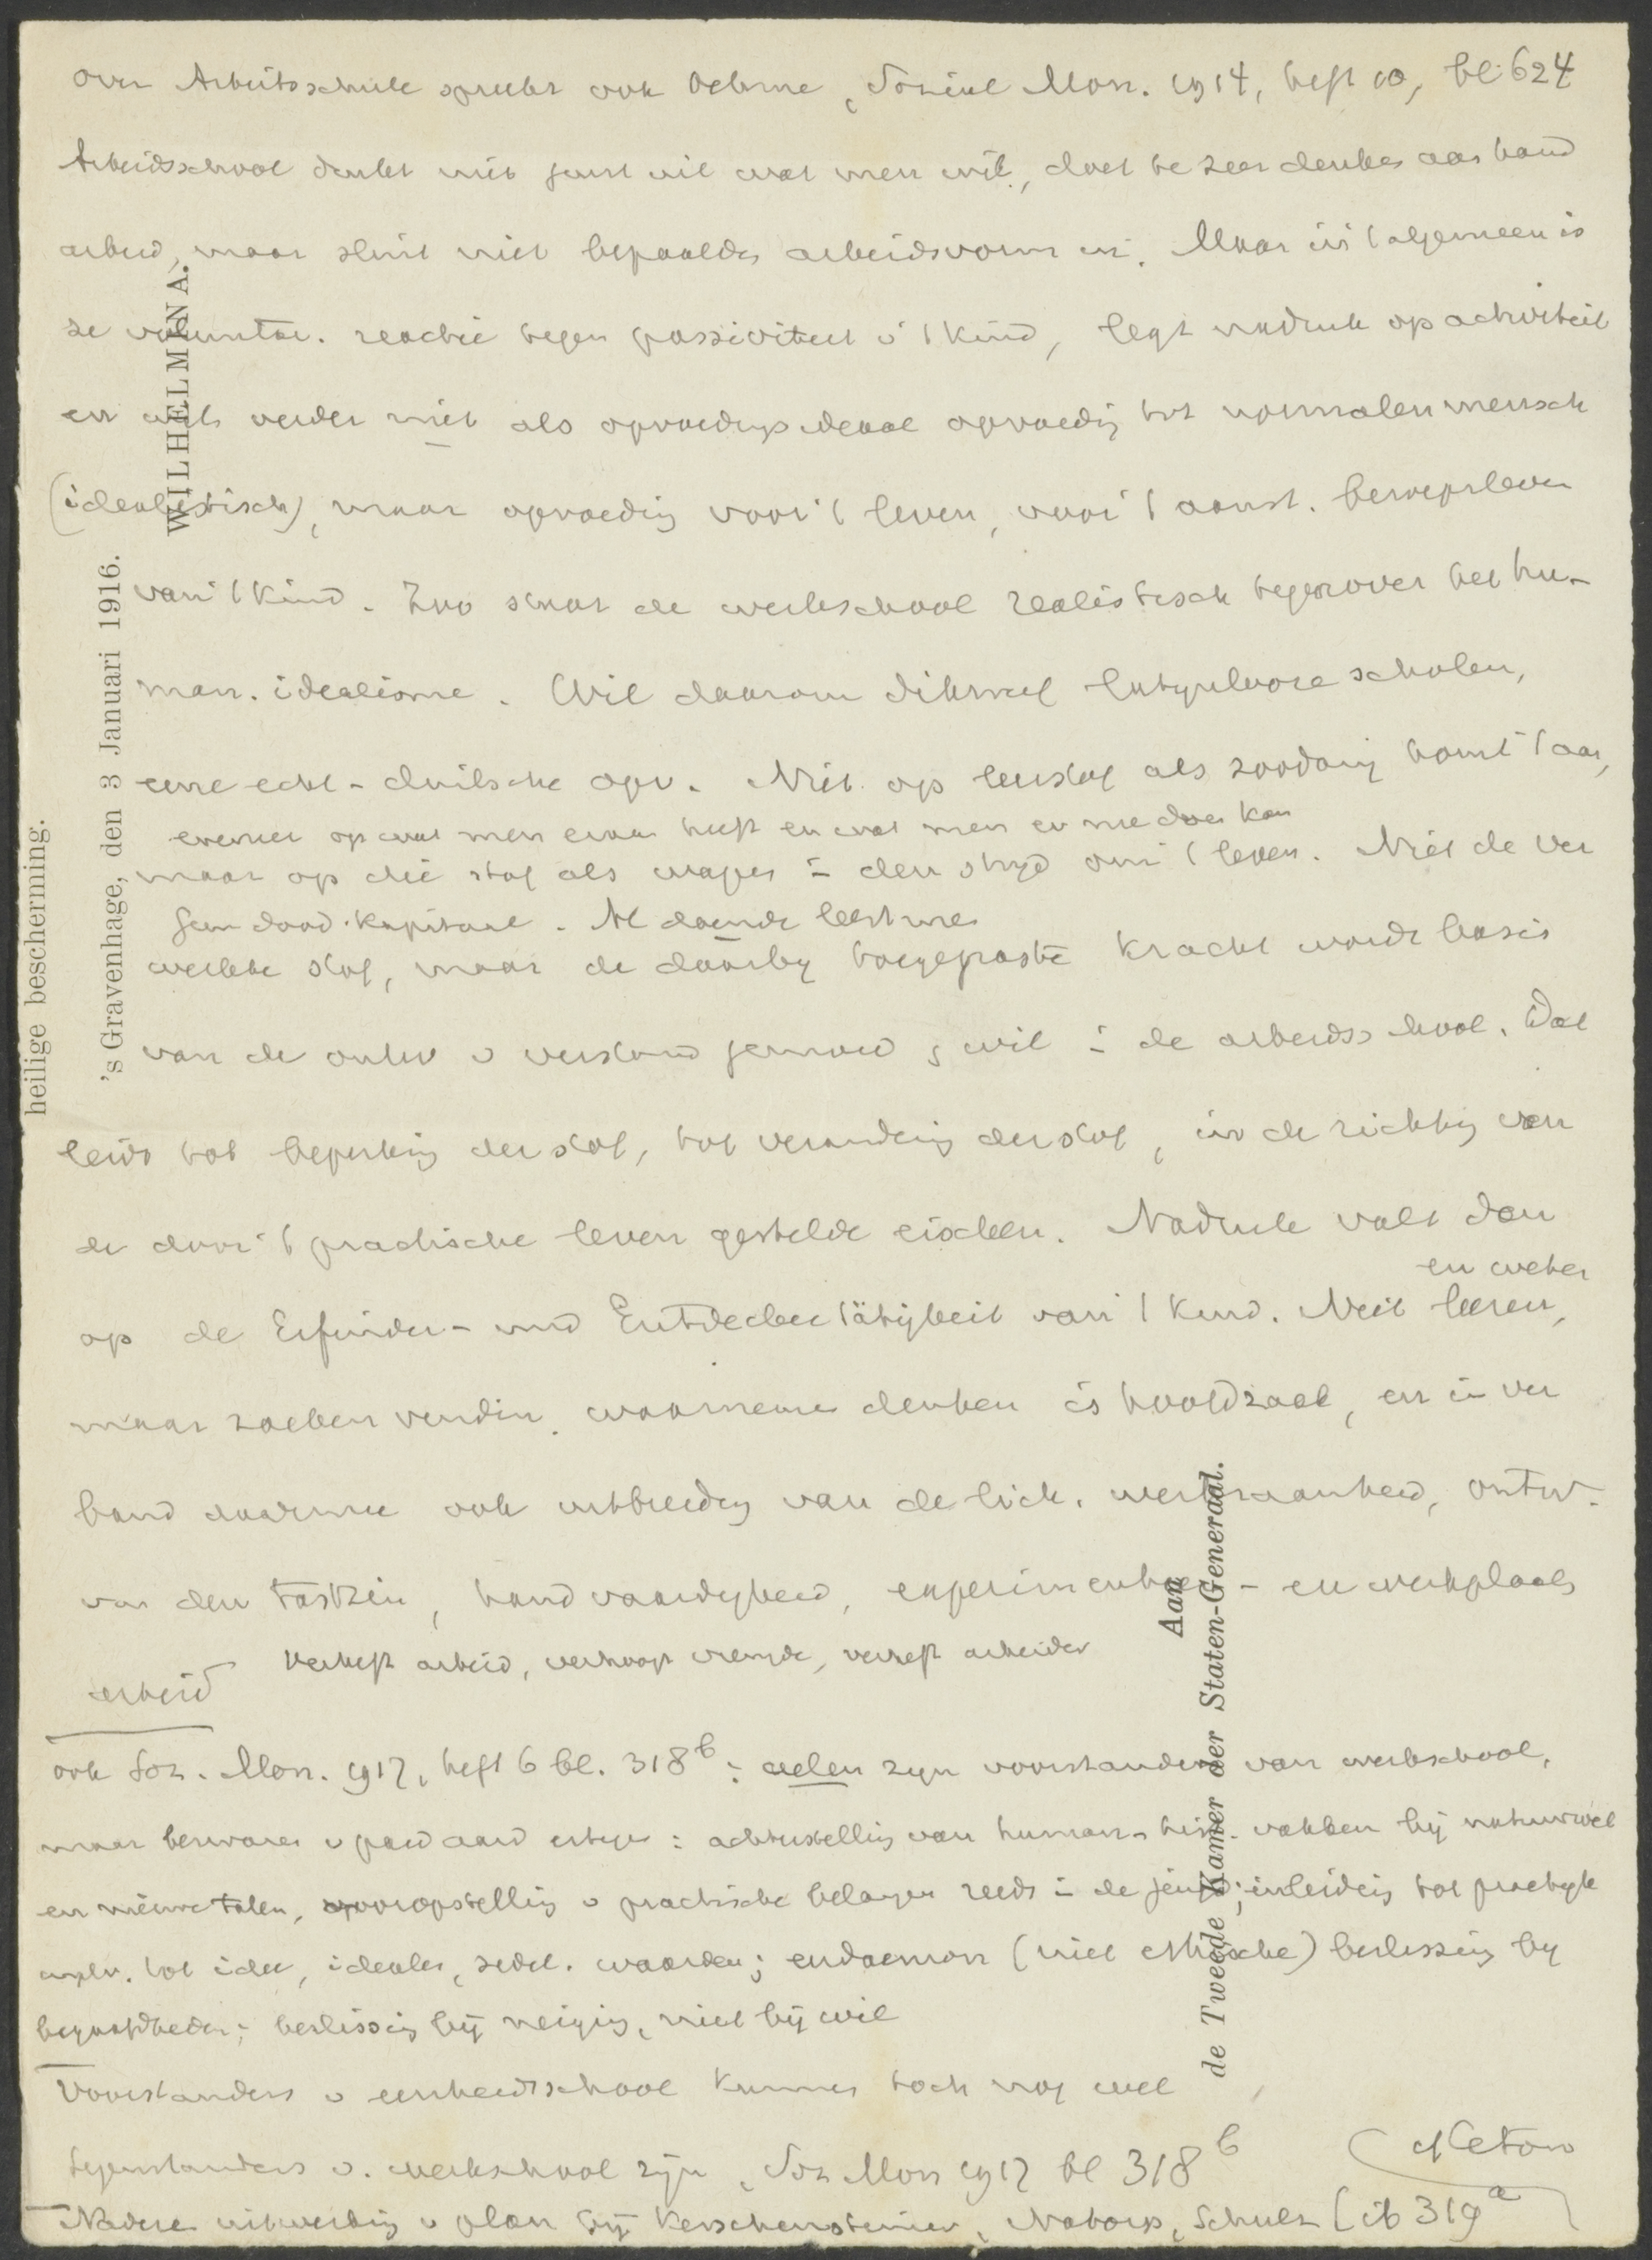 over Arbeitsschule spreekt ook Oehme, Sozial Mon. 1914, heft 10, bl. 624
Arbeidsschool denkt niet juist uit wat men wil, doet te zeer denken aan hand
arbeid, maar sluit niet bepaalde arbeidsvorm in. Maar in 't algemeen is
ze voluntar. reactie tegen passiviteit v 't kind, legt nadruk op activiteit
en verder niet als opvoedingsideaal opvoeding tot normalen mensch
(idealistisch), maar opvoeding voor 't leven, voor 't aanst. beroepsleven
van 't kind. Zoo staat de werkschool realistisch tegenover het hu-
man. idealisme. Wil daarom dikwijl latijnlooze scholen,
eene echt-duitsche opv. Niet op leerstof als zoodanig komt 't aan,
evenmin op wat men ervan heeft en wat men er mee doen kan
maar op die stof als wapen in den strijd om 't leven. Niet de ver
Geen dood kapitaal. Al doende leert men
werkte stof, maar de daarbij toegepaste kracht wordt basis
van de ontw v verstand gemoed en wil in de arbeidsschool. Dat
leidt tot beperking der stof, tot verandering der stof, in de richting van
de door 't practische leven gestelde eischen. Nadruk valt dan
en weten
op de Erfinder- und Entdeckertätigkeit van 't kind. Niet leeren,
maar zoeken vinden waarnemen denken is hoofdzaak, en in ver
band daarmee ook uitbreiding van de lich. werkzaamheid, ontw.
van den tastzin, handvaardigheid, experimenteer- en werkplaats
arbeid
Verheft arbeid, verhoogt vreugde, verheft arbeider
ook Soz. Mon. 1917, heft 6 bl. 318b: velen zijn voorstanders van werkschool,
maar bezwaren v paedaard ertegen: achterstelling van human-hist. vakken bij natuurwet
en nieuwe talen, vooropstelling v practische belangen reeds in de jeugd; inleiding tot practijk
tot idee, idealen, zedel. waarden; eudaemon (niet ethische) beslissing bij
begaafdheden; beslissing bij neiging, niet bij wil
Voorstanders v eenheidsschool kunnen toch nog wel
tegenstanders v. werkschool zijn, Soz Mon 1917 bl 318b
Nadere uitwerking v plan bij Kerschensteiner, Natorp, Schulz [ib 319a
heilige bescherming.
's Gravenhage, den 3 Januari 1916.
WILHELMINA.
Aan
de Tweede Kamer der Staten-Generaal.